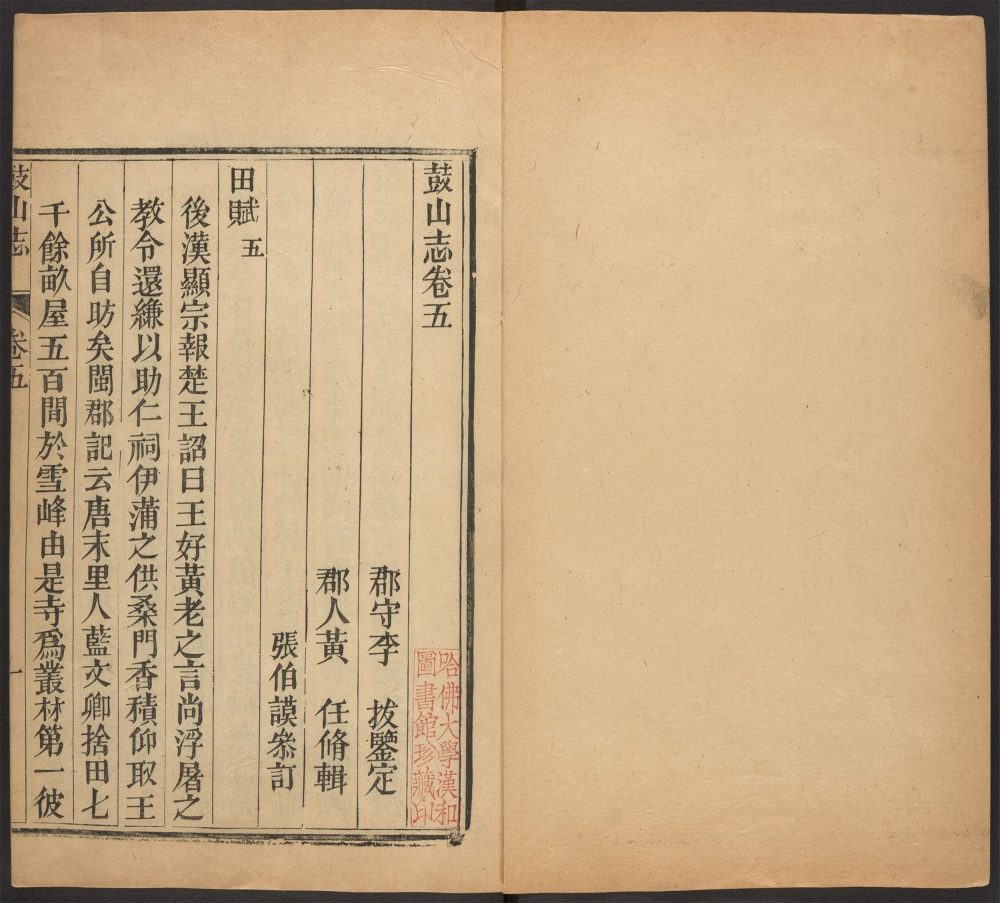 鼓山志卷五
郡守李　拔鑒定
郡人黃　任脩輯
張伯謨叅訂
田賦五
後漢顯宗報楚王詔曰王好黃老之言尚浮屠之
教令還縑以助仁祠伊蒲之供桑門香積仰取王
公所自昉矣閩郡記云唐末里人藍文卿捨田七
千餘畝屋五百間於雪峰由是寺爲叢材第一彼
鼓山志　卷五　一
哈佛大學漢和
圖書館珍藏印